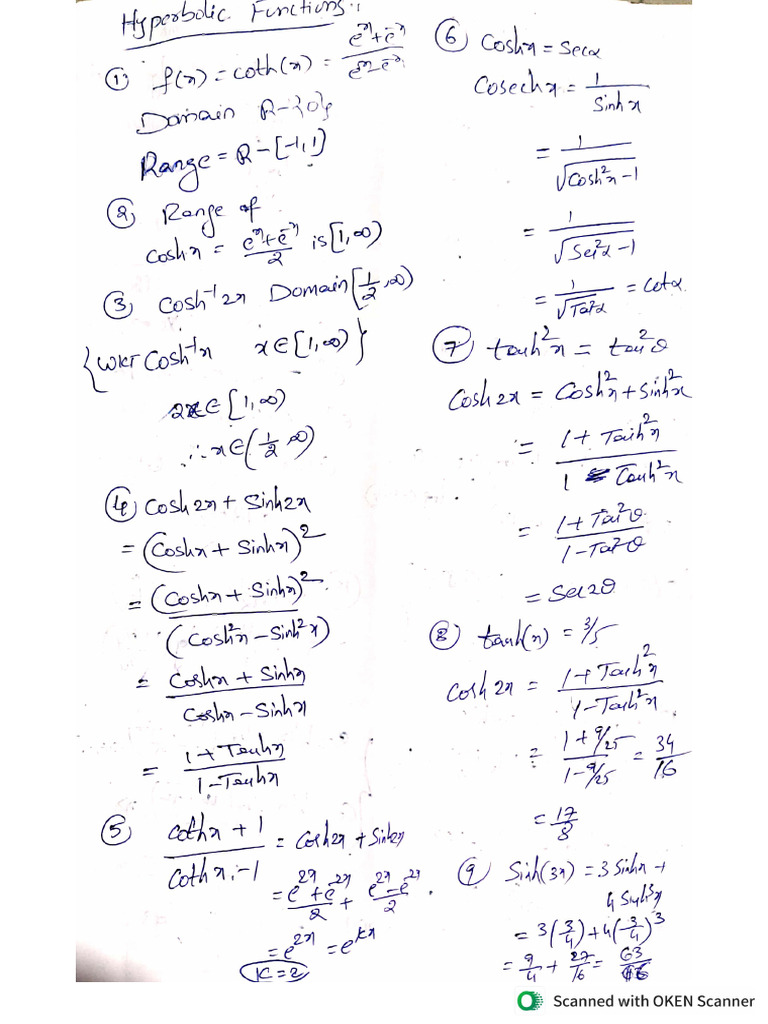 Hyperbolic Functions:
① f(x) = coth(x) = (e^x + e^-x)/(e^x - e^-x)
Domain R - {0}
Range = R - [-1, 1]
② Range of
coshx = (e^x + e^-x)/2 is [1, ∞)
③ cosh^-1 2x Domain [1/2, ∞)
{WKT Cosh^-1 x x ∈ [1, ∞)}
2x ∈ [1, ∞)
∴ x ∈ (1/2, ∞)
④ cosh2x + Sinh2x
= (Coshx + Sinhx)^2
= (Coshx + Sinhx)^2/(Cosh^2x - Sinh^2x)
= (Coshx + Sinhx)/(Coshx - Sinhx)
= (1 + Tanhx)/(1 - Tanhx)
⑤ (cothx + 1)/(cothx - 1) = Cosh2x + Sinh2x
= (e^2x + e^-2x)/2 + (e^2x - e^-2x)/2
= e^2x = e^kx
K = 2
⑥ Coshx = Secα
Cosechx = 1/Sinhx
= 1/√(Cosh^2x - 1)
= 1/√(Sec^2α - 1)
= 1/√(Tan^2α) = Cotα
⑦ tanh^2x = tan^2θ
Cosh2x = Cosh^2x + Sinh^2x
= (1 + Tanh^2x)/(1 - Tanh^2x)
= (1 + Tan^2θ)/(1 - Tan^2θ)
= Sec2θ
⑧ tanh(x) = 3/5
Cosh2x = (1 + Tanh^2x)/(1 - Tanh^2x)
= (1 + 9/25)/(1 - 9/25) = 34/16
= 17/8
⑨ Sinh(3x) = 3Sinhx +
4Sinh^3x
= 3(3/4) + 4(3/4)^3
= 9/4 + 27/16 = 63/16
Scanned with OKEN Scanner